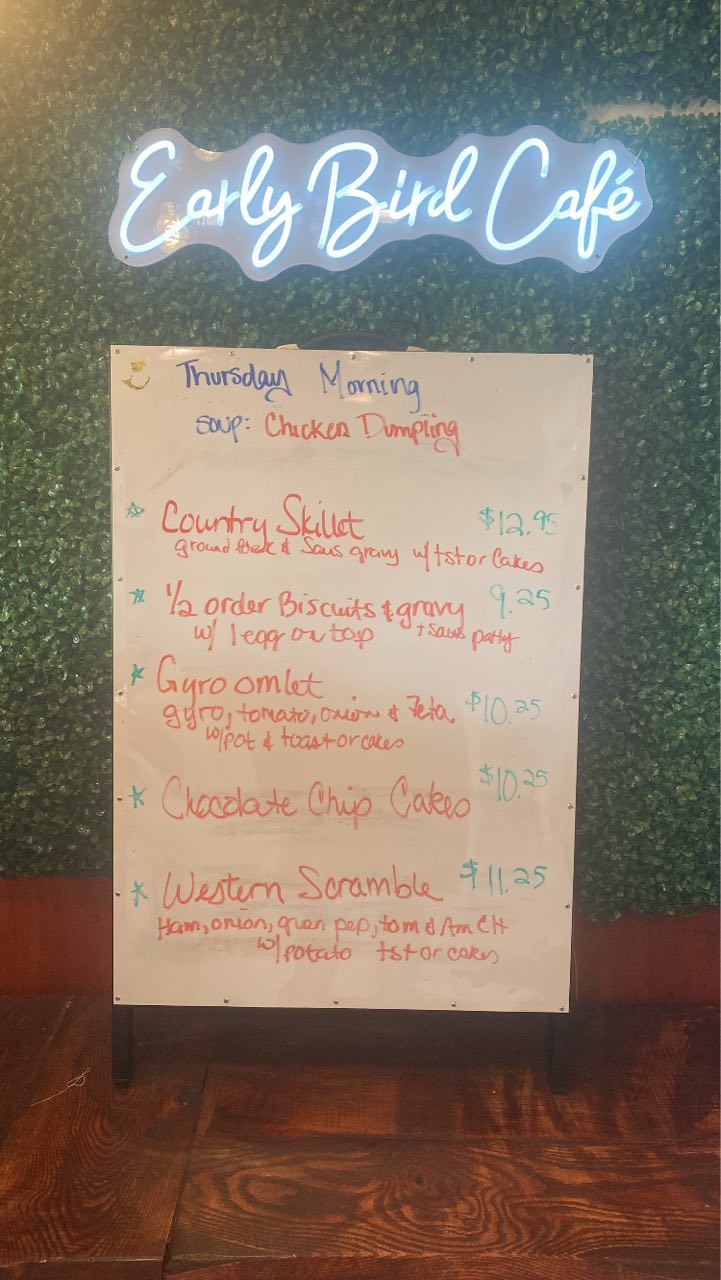 Early Bird Café
Thursday Morning
Soup: Chicken Dumpling
Country Skillet $12.95
ground & Saus gravy w/ tst or Cakes
1/2 order Biscuits & gravy 9.25
w/ 1 egg on top + Saus patty
Gyro omlet
gyro, tomato, onion & Feta $10.25
w/pot & toast or cakes
Chocolate Chip Cakes $10.25
Western Scramble $11.25
Ham, onion, green pep, tom & Am CH
w/potato tst or cakes